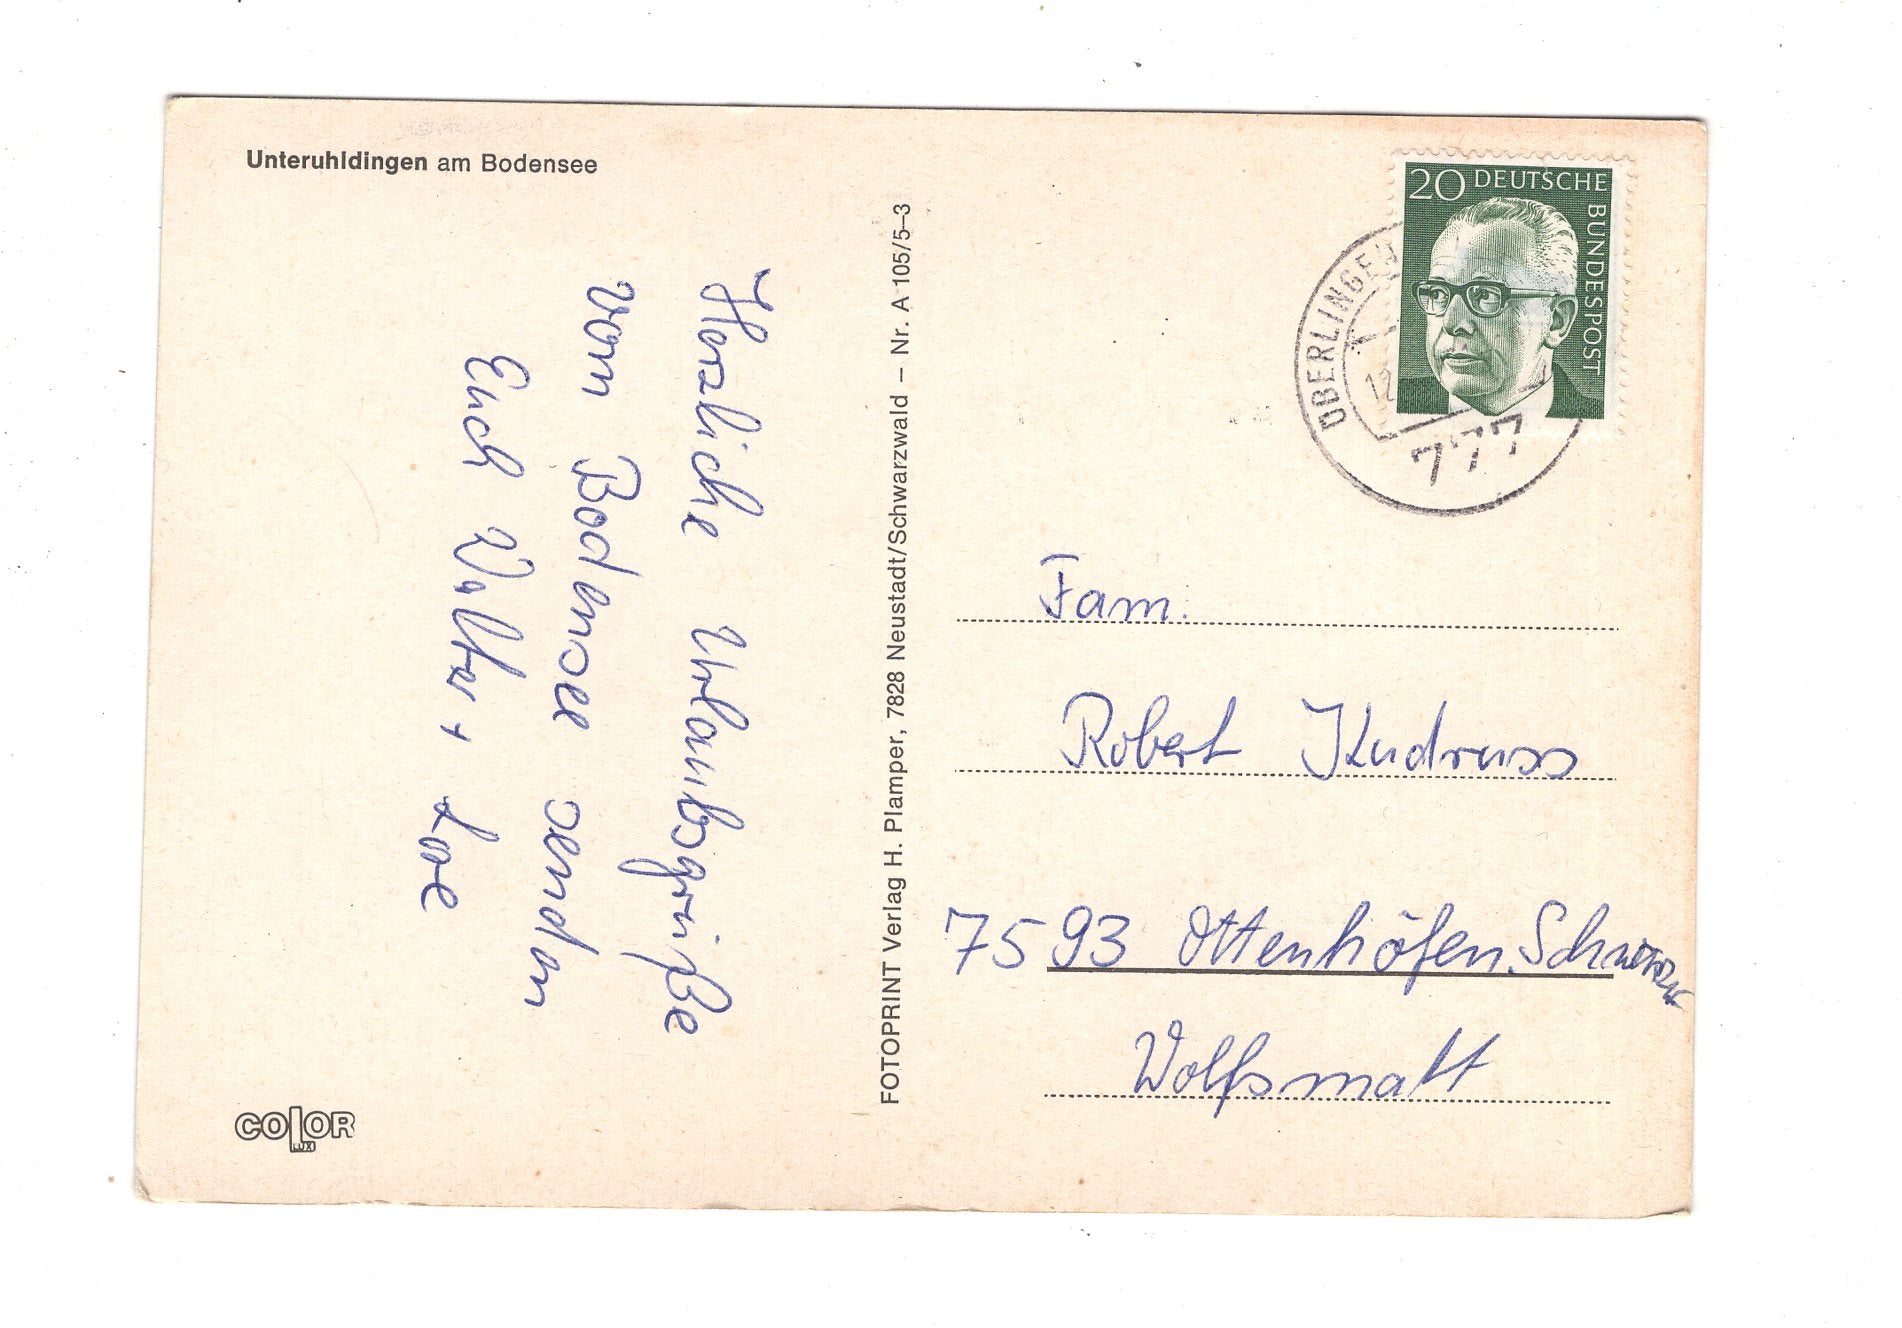 Unteruhldingen am Bodensee
Herzliche Urlaubsgrüße
vom Bodensee senden
Euch Walter +
COLOR
LUXI
FOTOPRINT Verlag H. Plamper, 7828 Neustadt/Schwarzwald – Nr. A 105/5–3
20 DEUTSCHE
BUNDESPOST
ÜBERLINGEN
12
777
Fam.
Robert Kudruss
7593 Ottenhöfen. Schwarzw
Wolfsmatt